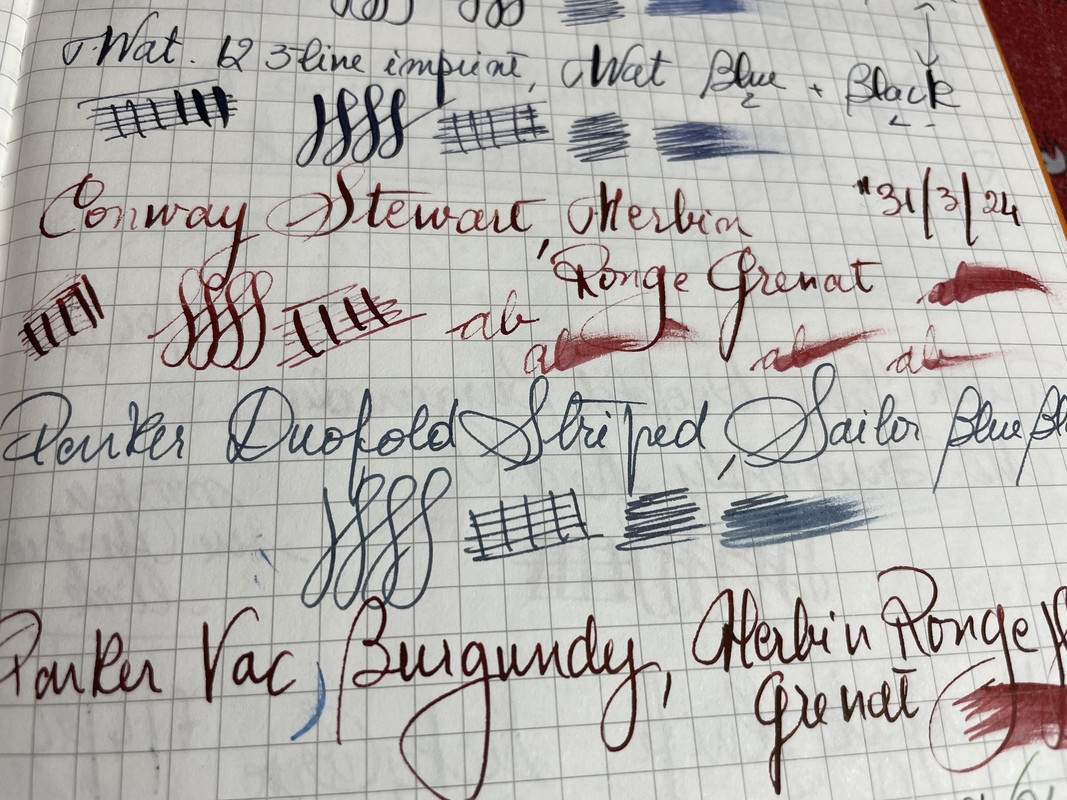 Wat. 12 3-line imprint, Wat Blue + Black
2
Conway Stewart, Herbin "31/3/24
Rouge Grenat
ab
ab ab ab
Parker Duofold Striped, Sailor Blue Bl
Parker Vac, Burgundy, Herbin Rouge
Grenat